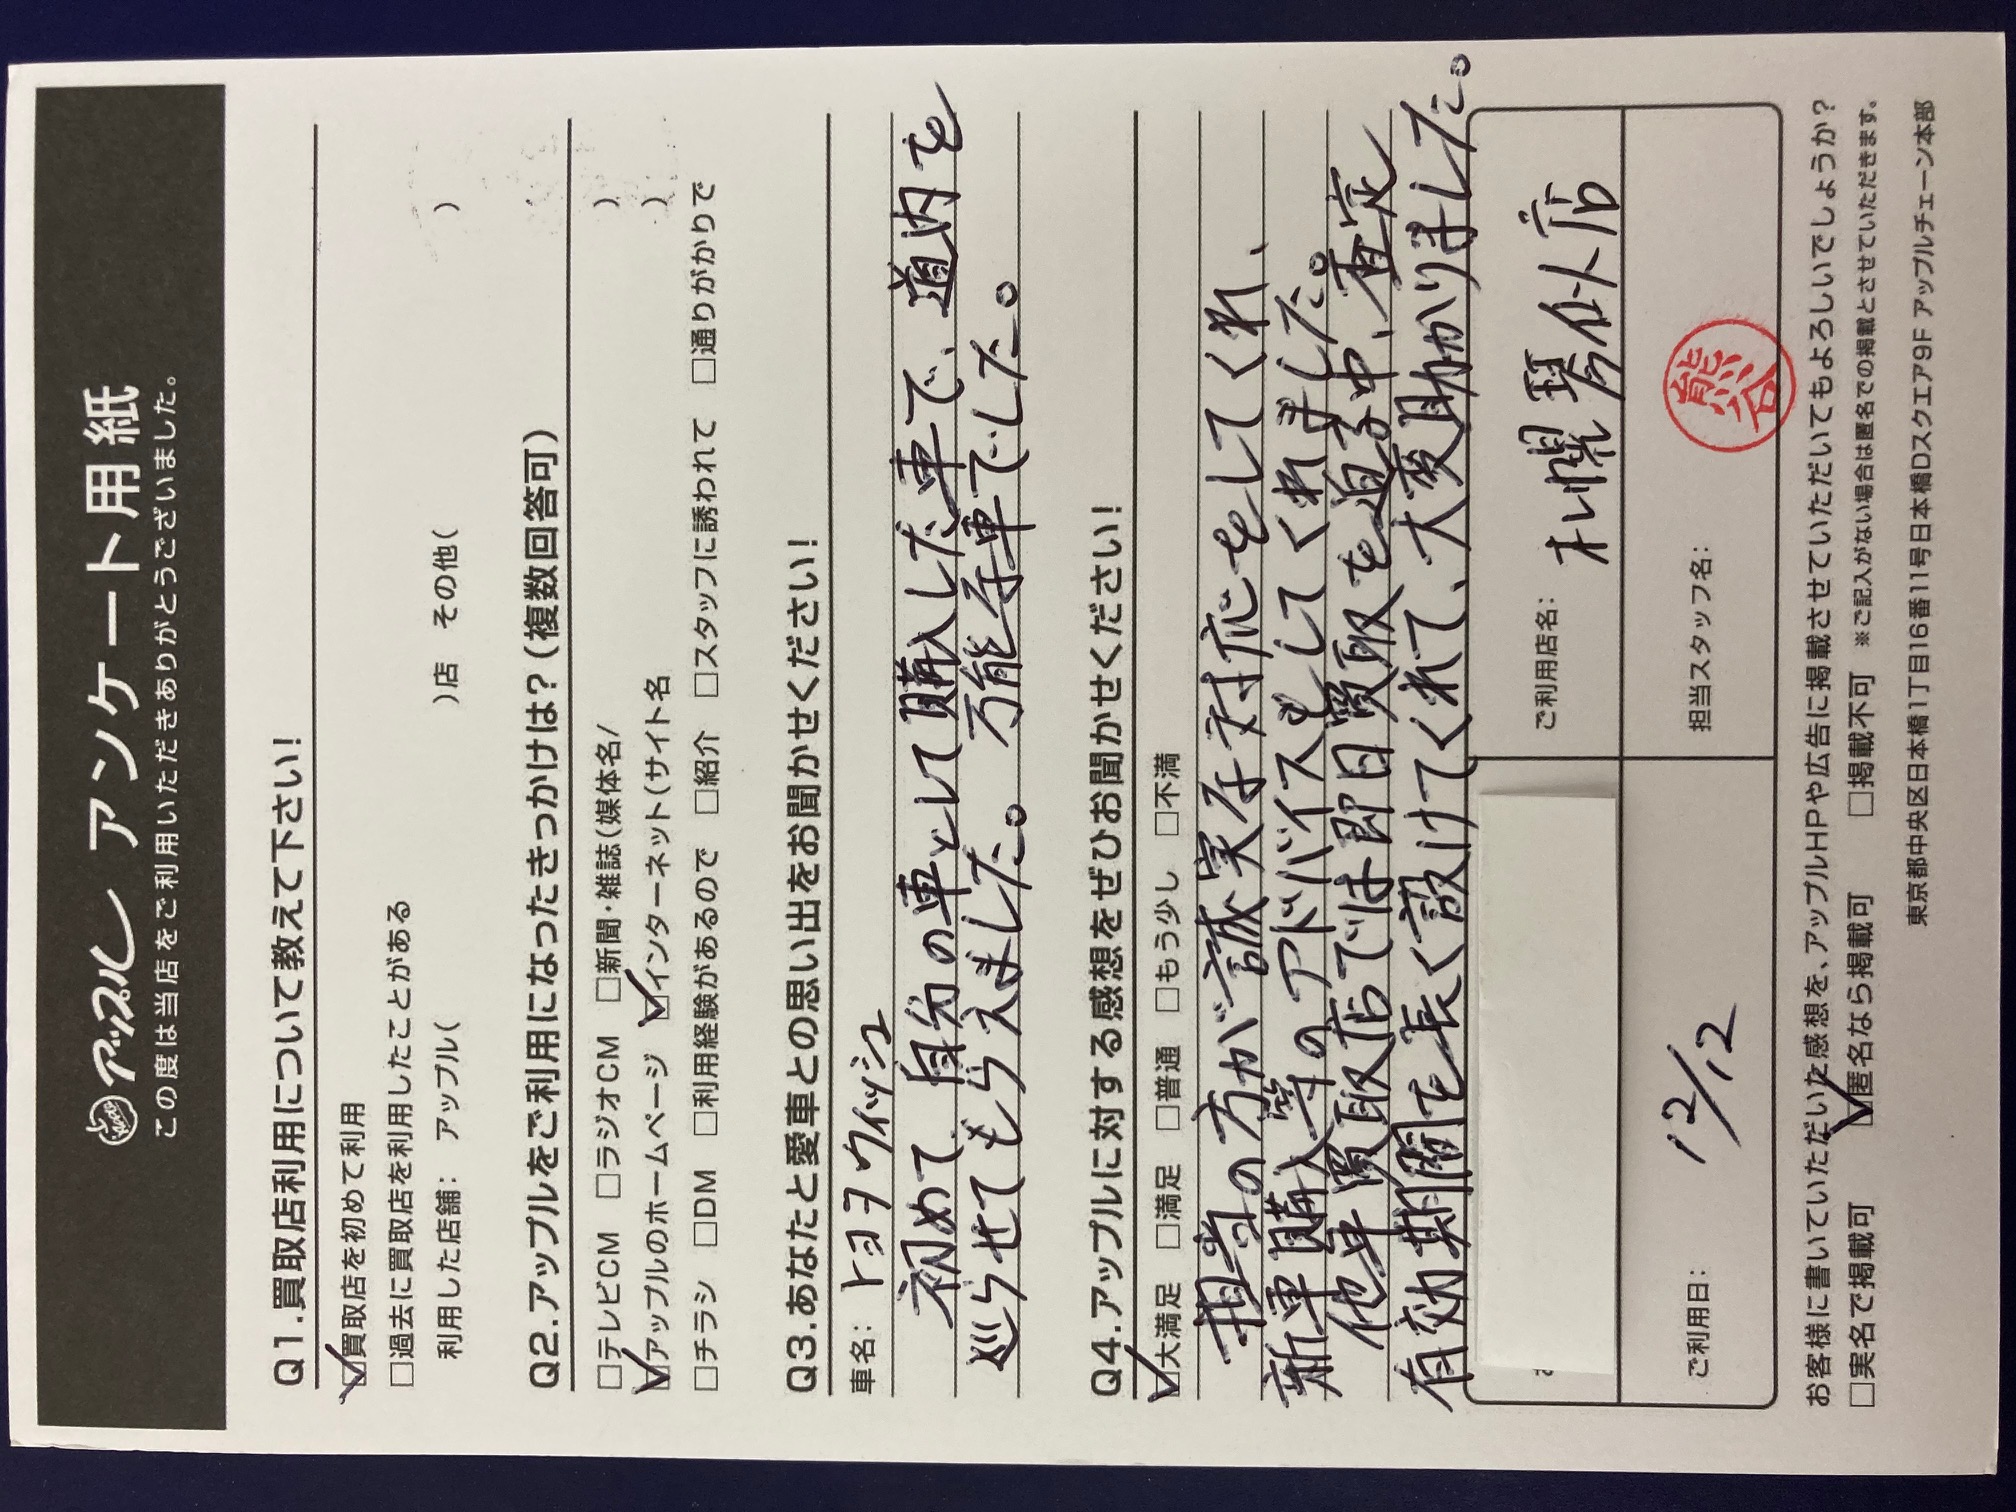 アップル アンケート用紙
この度は当店をご利用いただきありがとうございました。
Q1.買取店利用について教えて下さい!
☑買取店を初めて利用
□過去に買取店を利用したことがある
利用した店舗: アップル( )店 その他( )
Q2.アップルをご利用になったきっかけは?(複数回答可)
□テレビCM □ラジオCM □新聞・雑誌(媒体名/ )
☑アップルのホームページ ☑インターネット(サイト名 )
□チラシ □DM □利用経験があるので □紹介 □スタッフに誘われて □通りがかりで
Q3.あなたと愛車との思い出をお聞かせください!
車名: トヨタ ウイッシュ
初めて、自分の車として購入した車で、道内を
巡らせてもらえました。万能な車でした。
Q4.アップルに対する感想をぜひお聞かせください!
☑大満足 □満足 □普通 □もう少し □不満
担当の方が誠実な対応をしてくれ、
新車購入等のアドバイスもしてくれました。
他車買取店では即日買取を迫る中、査定
有効期間を長く設けてくれて、大変助かりました。
ご利用店名: 札幌琴似店
ご利用日: 12/12
担当スタッフ名: 熊谷
お客様に書いていただいた感想を、アップルHPや広告に掲載させていただいてもよろしいでしょうか?
□実名で掲載可 ☑匿名なら掲載可 □掲載不可 ※ご記入がない場合は匿名での掲載とさせていただきます。
東京都中央区日本橋1丁目16番11号日本橋Dスクエア9F アップルチェーン本部